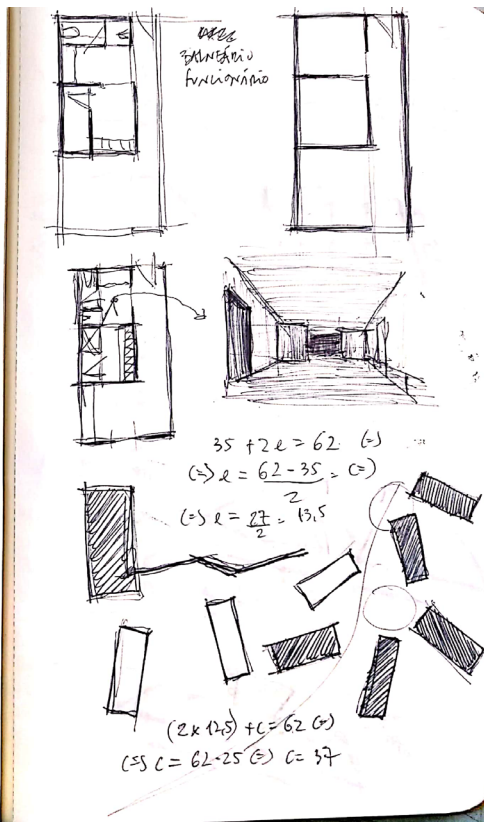 BALNEÁRIO
FUNCIONÁRIO
35 + 2l = 62 (=)
(=) l = 62 - 35 / 2 = (=)
(=) l = 27 / 2 = 13,5
(2 x 12,5) + C = 62 (=)
(=) C = 62 - 25 (=) C = 37